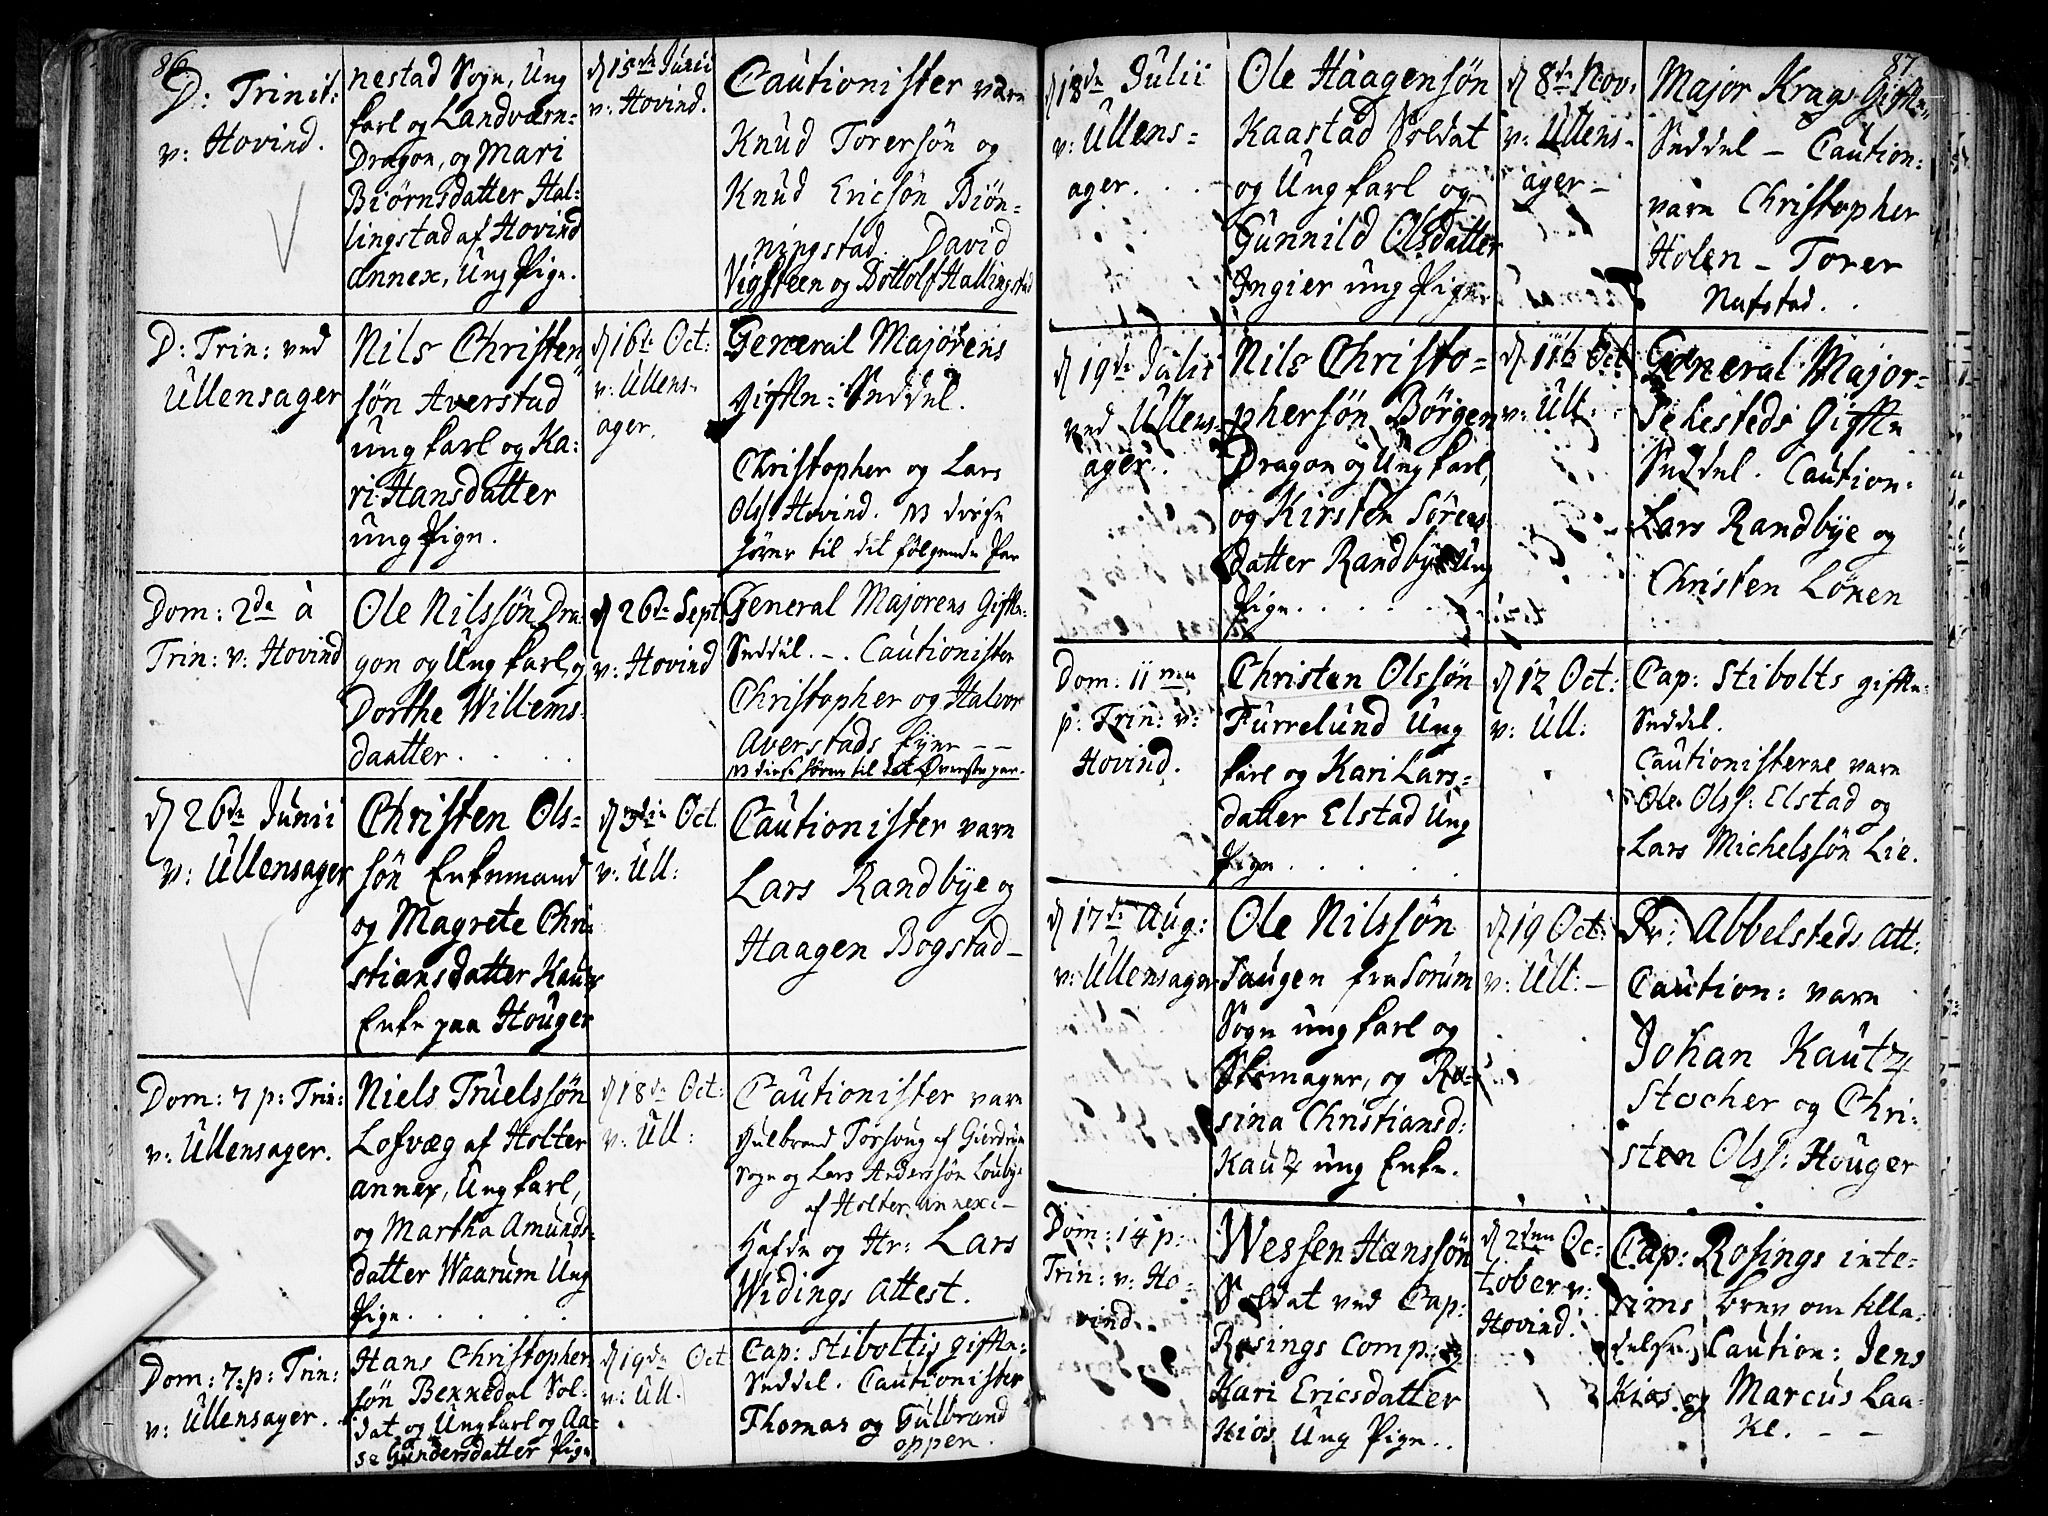 86.
D: Trinit:
v: Hovind.
nestad Sogn, Ung
karl og Landværn-
Dragon, og Mari
Biörnsdatter Hal-
lingstad af Hovind
annex, Ung Pige.
d 15de Junii
v: Hovind.
Cautionister vare
Knud Torersön og
Knud Ericsön Biön-
ningstad. David
Vigsteen og Dottolf Hallingstad
D: Trin: ved
Ullensager
Nils Christen
sön Averstad
ung karl og Ka-
ri Hansdatter
ung Pige.
d 16de Oct:
v: Ullens-
ager.
General Majorens
Gifte: Seddel.
Christopher og Lars
Olss: Hovind. NB disse
hörer til det fölgende Par
Dom: 2da à
Trin: v: Hovind
Ole Nilssön Dra-
gon og Ung karl og
Dorthe Willems-
daatter . . .
d 26de Sept
v: Hovind
General Majorens Gifte-
Seddel. -. Cautionister
Christopher og Halvor
Averstads Eyer --
NB disse hörer til det Överste par.
d 26de Junii
v: Ullensager
Christen Ols-
sön Enkemand
og Magrete Chri-
stiansdatter Kautz
Enke paa Houger
d Oct
v: Ull:
Cautionister vare
Lars Randbye og
Haagen Bogstad-
Dom: 7 p: Trin:
v: Ullensager.
Niels Truelssön
Lofvæg af Holter
annex, Ung karl,
og Martha Amunds-
datter Waarum Ung
Pige. . . . .
d 18de Oct:
v: Ull:
Cautionister vare
Gulbrand Torshoug af Gierdrum
Sogn og Lars Anderssön Loubye
af Holter annex: -
Hafde og Hr: Lars
Widings Attest.
Dom: 7. p: Trin:
v: Ullensager.
Hans Christopher
sön Bennedal Sol-
dat og Ung karl og Aa-
se Gundersdatter Pige
d 19de Oct
v: Ull.
Cap: Stiboltz gifte-
Seddel. Cautionister
Thomas og Gulbrand
oppen.
87.
d 18de Julii
v: Ullens-
ager. . .
Ole Haagensön
Kaastad Soldat
og Ung karl og
Gunnild Olsdatter
Ingier ung Pige.
d 8de Nov:
v: Ullens-
ager -
Major Krags Gifte-
Seddel - Caution:
vare Christopher
Holen - Torer
Nafstad. .
d 19de Julii
ved Ullens-
ager.
Nils Christo-
phersön Börgen
Dragon og Ung karl,
og Kirsten Sörens
datter Randbye Ung
Pige. . . .
d 11te Oct
v: Ull:
General Major-
Sehesteds Gifte
Seddel. Caution:
Lars Randbye og
Christen Lönen
Dom: 11ma
p: Trin: v:
Hovind.
Christen Olssön
Furrelund Ung
karl og Kari Lars-
datter Elstad Ung
Pige . . . .
d 12 Oct:
v: Ull:
Cap: Stibolts gifte-
Seddel.
Cautionisterne vare
Ole Olss: Elstad og
Lars Michelssön Lie.
d 17de Aug:
v: Ullensager
Ole Nilssön
Saugen fra Sorum
Sogn ung karl og
Skomager, og Ro-
sina Christiansd:
Kautz ung Enke.
d 19 Oct:
v: Ull: -
Hr: Abbelsteds Att:
Caution: vare
Johan Kautz
Stocher og Chri-
sten Olss: Houger
Dom: 14 p:
Trin: v: Ho-
vind.
Wessen Hanssön
Soldat ved Cap:
Rosings Comp: og
Kari Ericsdatter
Kios Ung Pige..
d 2den Oc-
tober v:
Hovind.
Cap: Rosings inte-
rims brev om tilla-
delse. Caution: Jens
Kios og Marcus Laa-
ke. - -